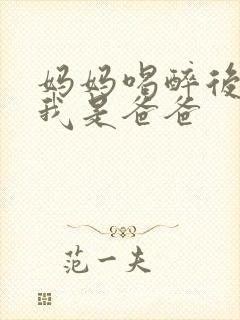 妈妈喝醉後
我是爸爸
范一夫